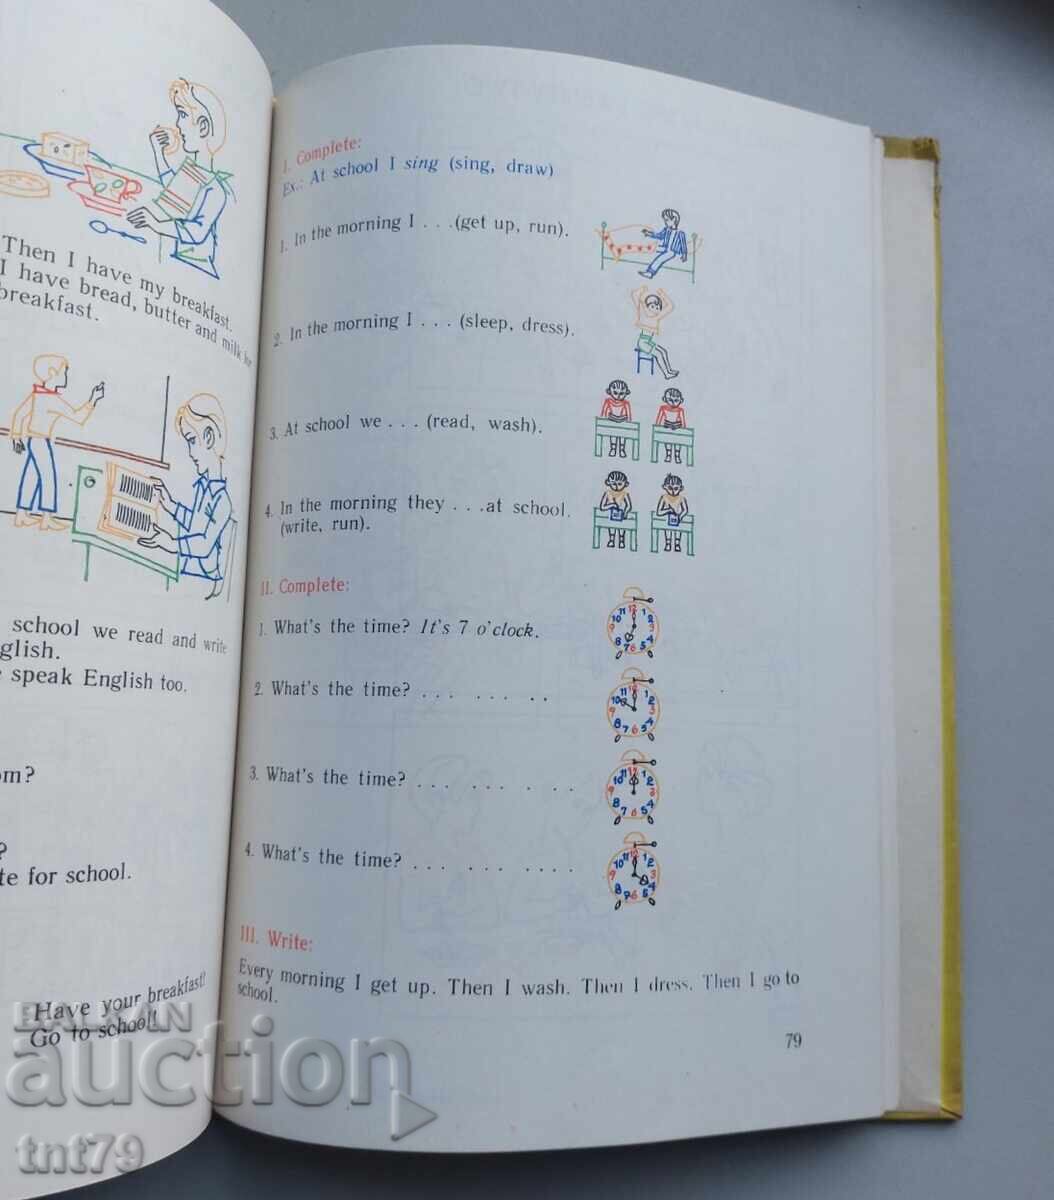 Then I have my breakfast.
I have bread, butter and milk for
breakfast.
school we read and write
glish.
speak English too.
om?
?
te for school.
Have your breakfast!
Go to school!
I. Complete:
Ex.: At school I sing (sing, draw)
1. In the morning I . . .(get up, run).
2. In the morning I . . . (sleep, dress).
3. At school we . . . (read, wash).
4. In the morning they . . .at school.
(write, run).
II. Complete:
1. What's the time? It's 7 o'clock.
2. What's the time? . . . . . . . .
3. What's the time? . . . . . . . . . .
4. What's the time? . . . . . . . . . . .
III. Write:
Every morning I get up. Then I wash. Then I dress. Then I go to
school.
79
БАLKAN
auction
tnt79